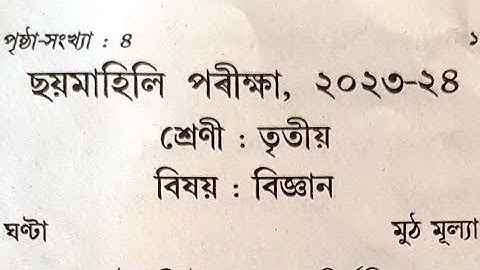 পৃষ্ঠা-সংখ্যা : ৪
ছয়মাহিলি পৰীক্ষা, ২০২৩-২৪
শ্ৰেণী : তৃতীয়
বিষয় : বিজ্ঞান
ঘণ্টা মুঠ মূল্যা